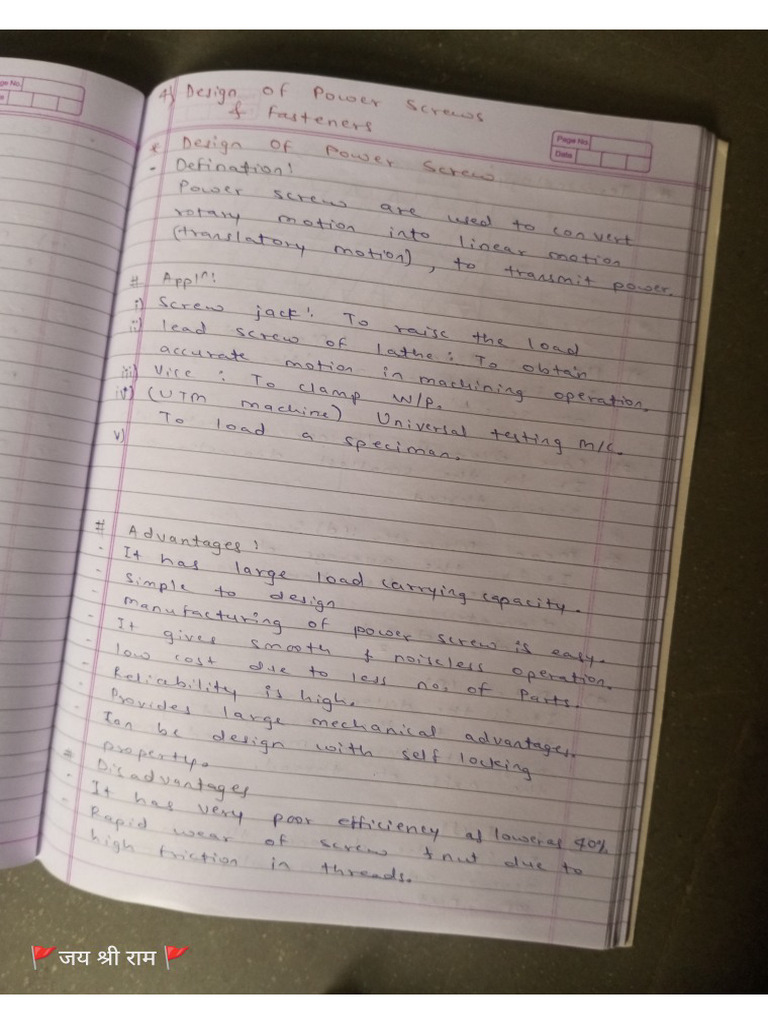 ge No.
e
Page No.
Date
4) Design of Power Screws
& Fasteners
* Design Of Power Screw
- Defination!
Power screw are used to convert
rotary motion into linear motion
(translatory motion), to transmit power.
# Appln!
i) Screw jack: To raise the load
ii) lead screw of lathe: To obtain
accurate motion in machining operation.
iii) Vice: To clamp W/P.
iv) (UTM machine) Universal testing m/c.
v) To load a speciman.
# Advantages!
- It has large load carrying capacity.
- Simple to design
- manufacturing of power screw is easy.
- It gives smooth & noiseless operation.
- low cost due to less no. of Parts.
- Reliability is high.
- Provides large mechanical advantages.
- Ican be design with self locking
property.
# Disadvantages
- It has very poor efficiency as loweras 40%
- Rapid wear of screw & nut due to
high friction in threads.
🚩जय श्री राम🚩